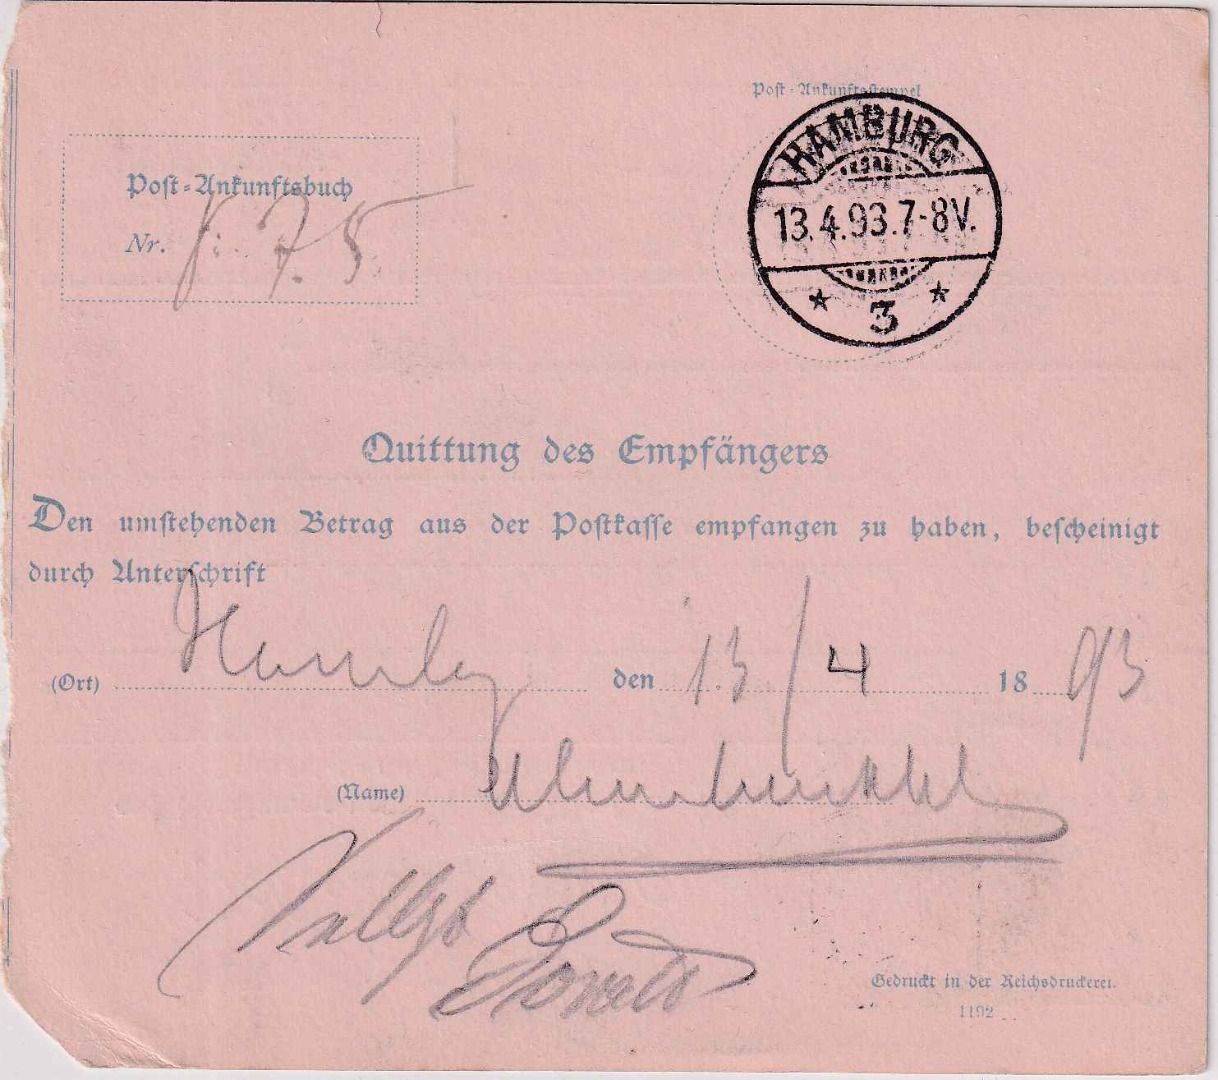 Post-Ankunftsstempel
HAMBURG
13.4.93.7-8V.
3
Post-Ankunftsbuch
Nr.
Quittung des Empfängers
Den umstehenden Betrag aus der Postkasse empfangen zu haben, bescheinigt
durch Unterschrift
(Ort) den 13/4 1893
(Name)
Gedruckt in der Reichsdruckerei.
1192